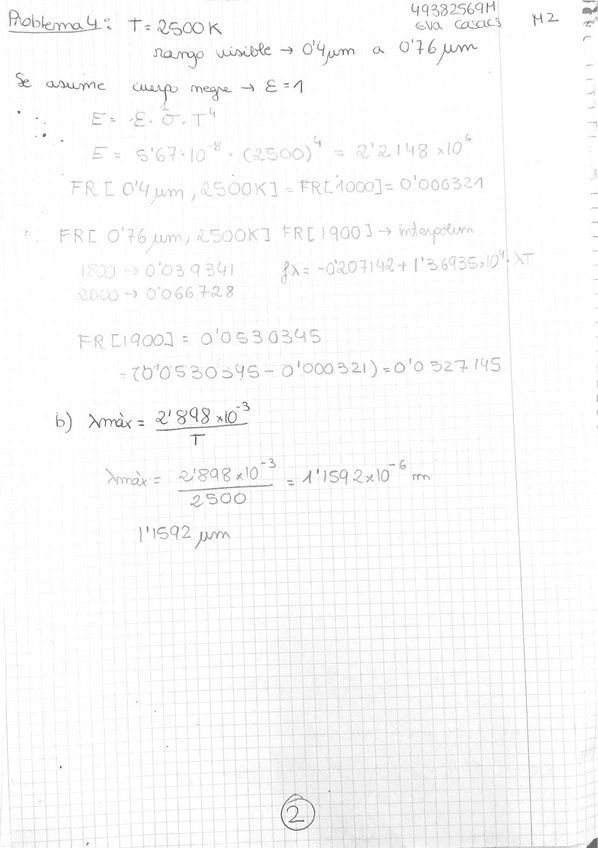 49382569M
Problema 4: T = 2500K Eva Casacs M2
rango visible → 0'4 μm a 0'76 μm
Se asume cuerpo negre → ε = 1
E = ε · σ · T⁴
E = 5'67 · 10⁻⁸ · (2500)⁴ = 2'2148 × 10⁶
FR [ 0'4 μm , 2500K ] = FR [1000] = 0'000321
FR [ 0'76 μm, 2500K ] FR [1900] → interpolem
1800 → 0'039341 fλ = -0'207142 + 1'36935 × 10⁻⁴ · λT
2000 → 0'066728
FR [1900] = 0'0530345
= (0'0530345 - 0'000321) = 0'0527145
b) λmàx = 2'898 × 10⁻³ / T
λmàx = 2'898 × 10⁻³ / 2500 = 1'1592 × 10⁻⁶ m
1'1592 μm
2